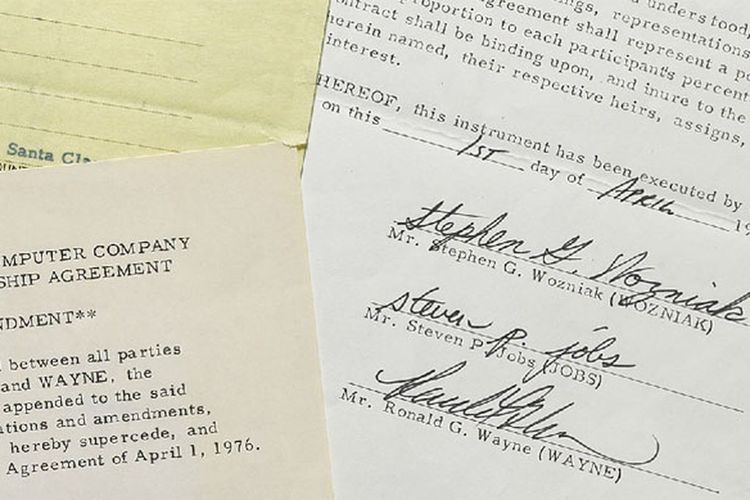 Santa Cla
MPUTER COMPANY
SHIP AGREEMENT
NDMENT**
between all parties
and WAYNE, the
appended to the said
ations and amendments,
hereby supercede, and
Agreement of April 1, 1976.
ngs, representations
understood,
proportion to each agreement shall represent a
ontract shall be binding upon, and inure to the
participant's percent
herein named, their respective heirs, assigns,
interest.
HEREOF, this instrument has been executed by
on this 1ST day of APRIL 19
Stephen G. Wozniak
Mr. Stephen G. Wozniak (WOZNIAK)
steven p. jobs
Mr. Steven P. Jobs (JOBS)
Mr. Ronald G. Wayne (WAYNE)